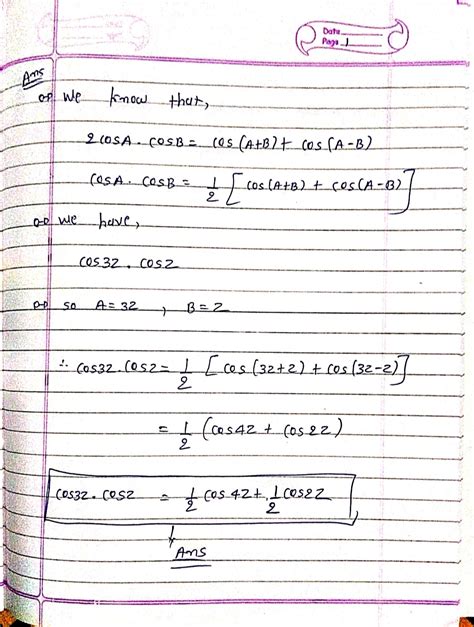 Date
Page 1
Ans
we know that,
2 cosA . cosB = cos (A+B) + cos (A-B)
cosA . cosB = 1/2 [ cos (A+B) + cos (A-B) ]
we have,
cos3z . cosz
so A = 3z , B = z
∴ cos3z . cosz = 1/2 [ cos (3z+z) + cos (3z-z) ]
= 1/2 (cos4z + cos2z)
cos3z . cosz = 1/2 cos4z + 1/2 cos2z
Ans